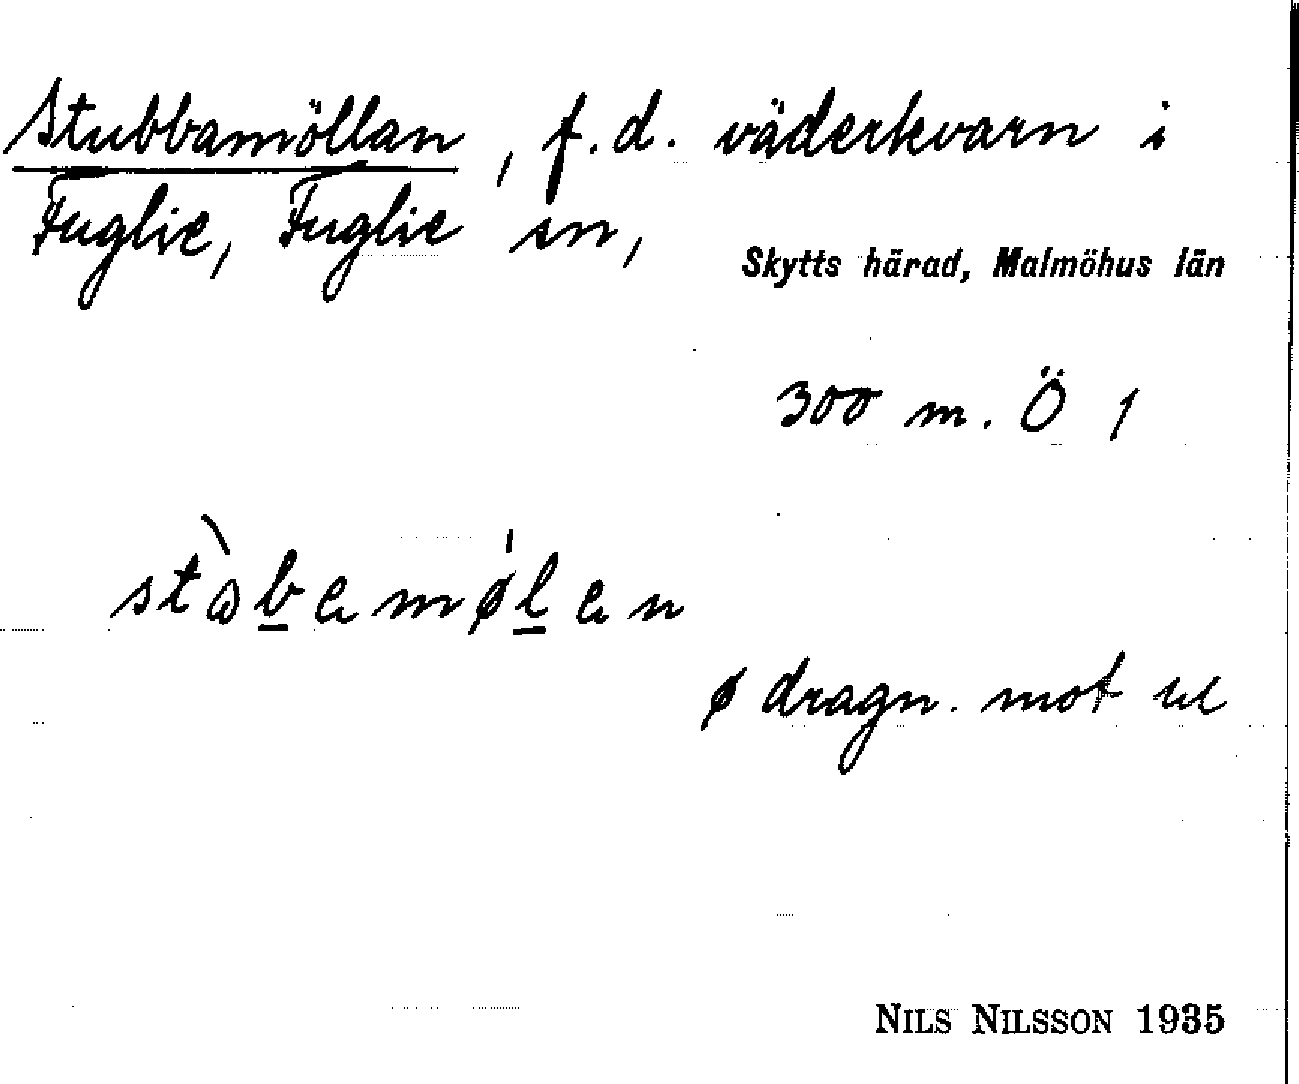 Stubbamöllan, f.d. väderkvarn i
Fuglie, Fuglie sn,
Skytts härad, Malmöhus län
300 m. Ö 1
ø dragn. mot
NILS NILSSON 1935